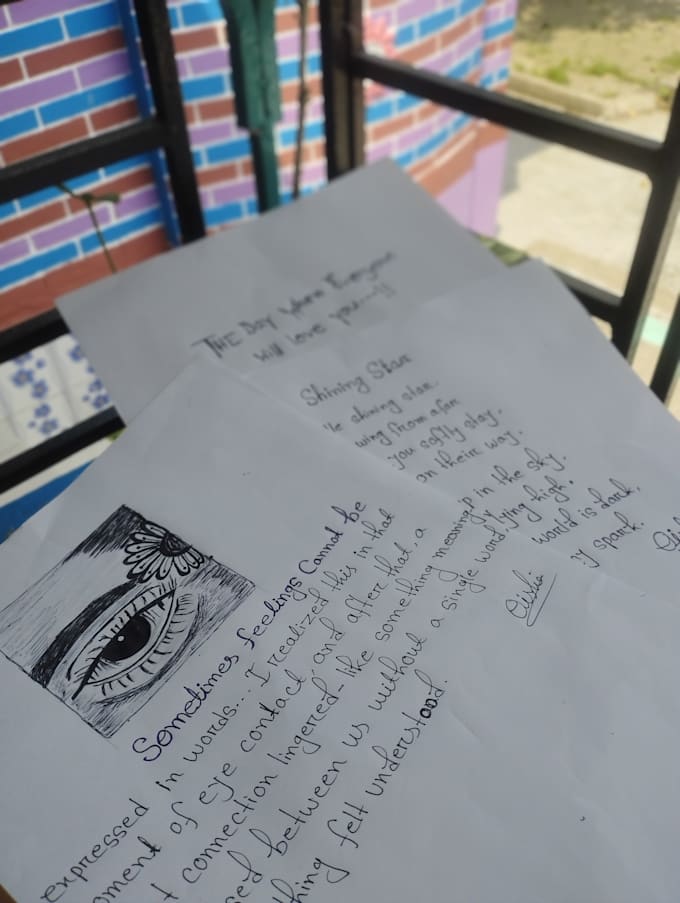 THE Day When Everyone
will love you
Shining Star
shining star.
wing from afar
you softly stay.
on their way.
in the sky.
ying high.
world is dark.
y spark.
Sometimes feelings Cannot be
expressed in words... I realized this in that
oment of eye contact, and after that, a
t connection lingered- like something meaning
sed between us without a single word,
thing felt understood.